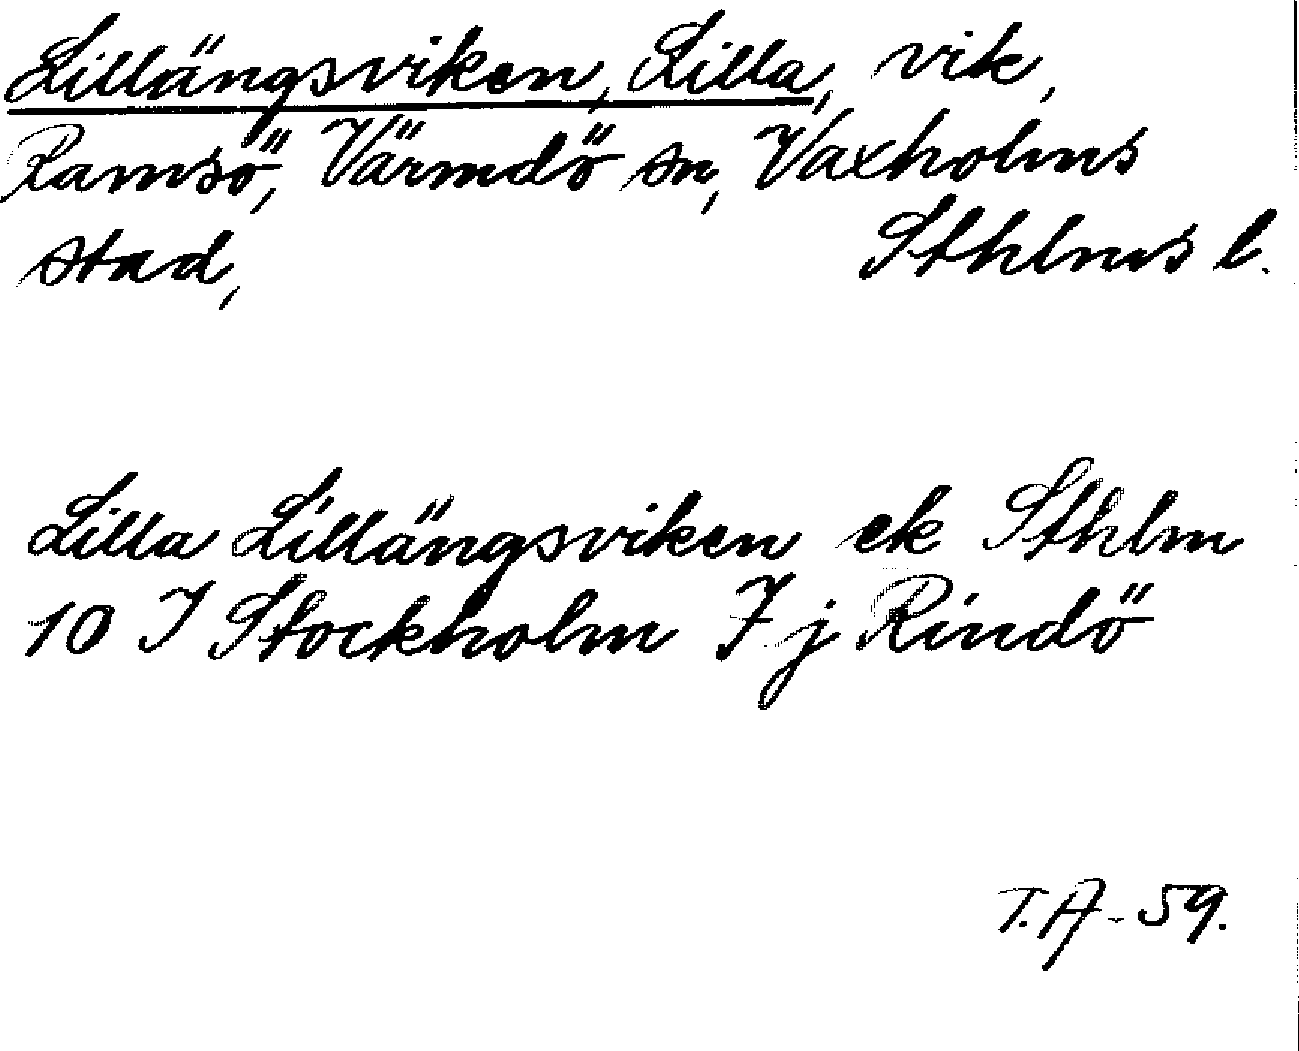 Lillängsviken, Lilla, vik,
Ramsö, Värmdö sn, Vaxholms
stad, Sthlms l.
Lilla Lillängsviken ek Sthlm
10 I Stockholm 7 j Rindö
T.A-59.